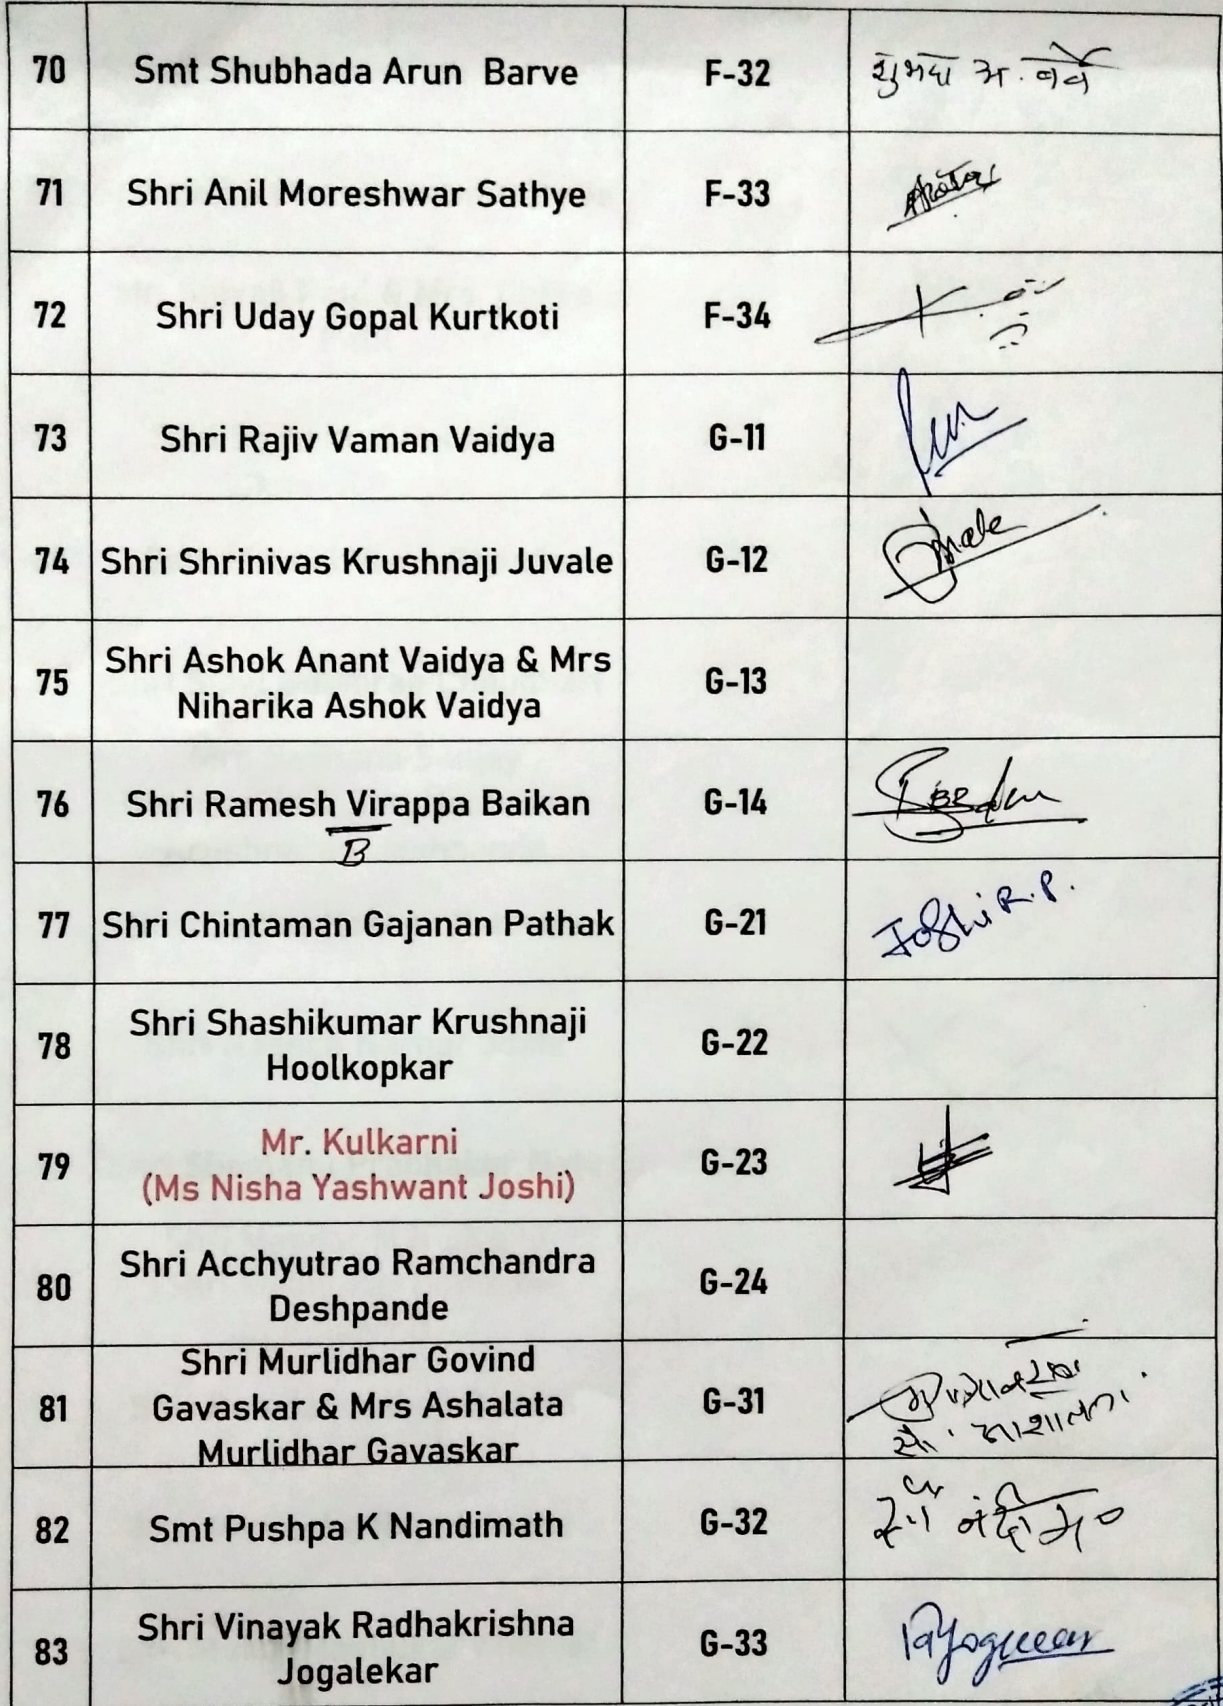 70 Smt Shubhada Arun Barve F-32 शुभदा अ. बर्वे
71 Shri Anil Moreshwar Sathye F-33
72 Shri Uday Gopal Kurtkoti F-34
73 Shri Rajiv Vaman Vaidya G-11
74 Shri Shrinivas Krushnaji Juvale G-12
75 Shri Ashok Anant Vaidya & Mrs
Niharika Ashok Vaidya G-13
76 Shri Ramesh Virappa Baikan G-14
B
77 Shri Chintaman Gajanan Pathak G-21 Joshi R.P.
78 Shri Shashikumar Krushnaji
Hoolkopkar G-22
79 Mr. Kulkarni
(Ms Nisha Yashwant Joshi) G-23
80 Shri Acchyutrao Ramchandra
Deshpande G-24
81 Shri Murlidhar Govind
Gavaskar & Mrs Ashalata G-31
Murlidhar Gavaskar सौ. आशालता
82 Smt Pushpa K Nandimath G-32
83 Shri Vinayak Radhakrishna
Jogalekar G-33